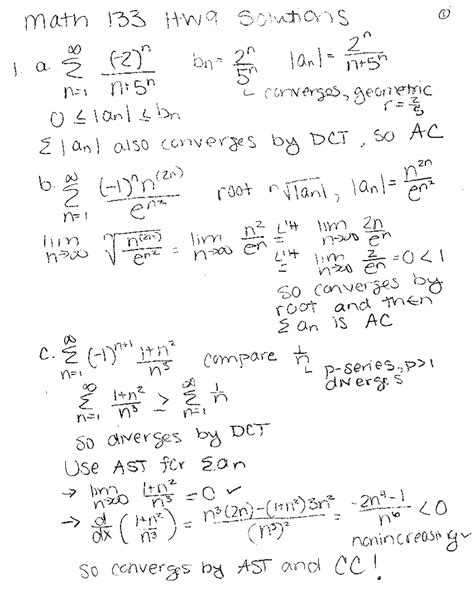 Math 133 HW9 Solutions ①
1. a. ∞ Σ n=1 (-2)^n / n+5^n   bn = 2^n / 5^n   |an| = 2^n / n+5^n
↳ converges, geometric r = 2/5
0 ≤ |an| ≤ bn
Σ|an| also converges by DCT, so AC
b. ∞ Σ n=1 (-1)^n n^(2n) / e^n²   root n√|an|, |an| = n^2n / e^n²
lim n→∞ n√(n^(2n) / e^n²) = lim n→∞ n² / e^n L'H = lim n→∞ 2n / e^n
L'H = lim n→∞ 2 / e^n = 0 < 1
so converges by
root and then
Σan is AC
c. ∞ Σ n=1 (-1)^n+1 1+n² / n³   compare 1/n
↳ p-series, p>1
diverges
∞ Σ n=1 1+n² / n³ ≥ ∞ Σ n=1 1/n
So diverges by DCT
Use AST for Σan
→ lim n→∞ 1+n² / n³ = 0 ✓
→ d/dx (1+n² / n³) = n³(2n)-(1+n²)3n² / (n³)² = -2n⁴-1 / n⁶ < 0
nonincreasing ✓
So converges by AST and CC!